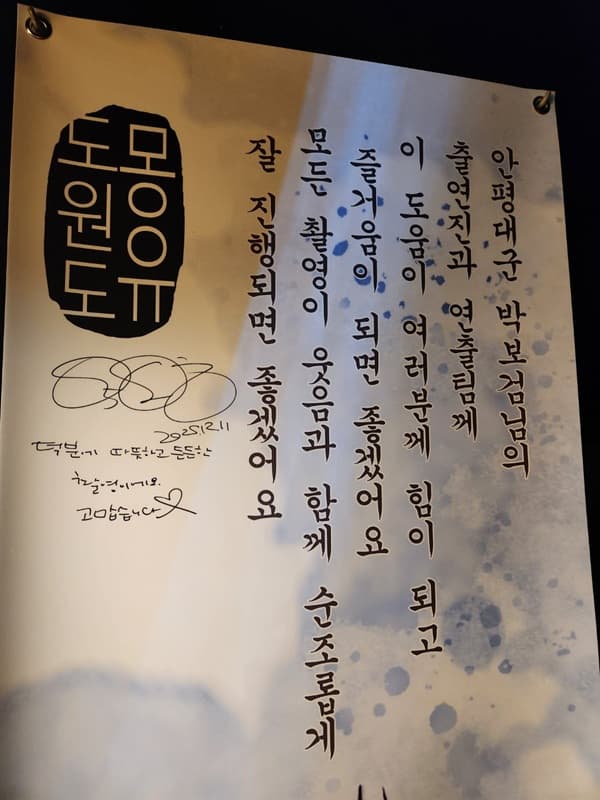 안평대군 박보검님의
출연진과 연출팀께
이 도움이 여러분께 힘이 되고
즐거움이 되면 좋겠어요
모든 촬영이 웃음과 함께 순조롭게
잘 진행되면 좋겠어요
몽유
도원도
2025.12.11
덕분에 따뜻하고 든든한
촬영이에요
고맙습니다♡